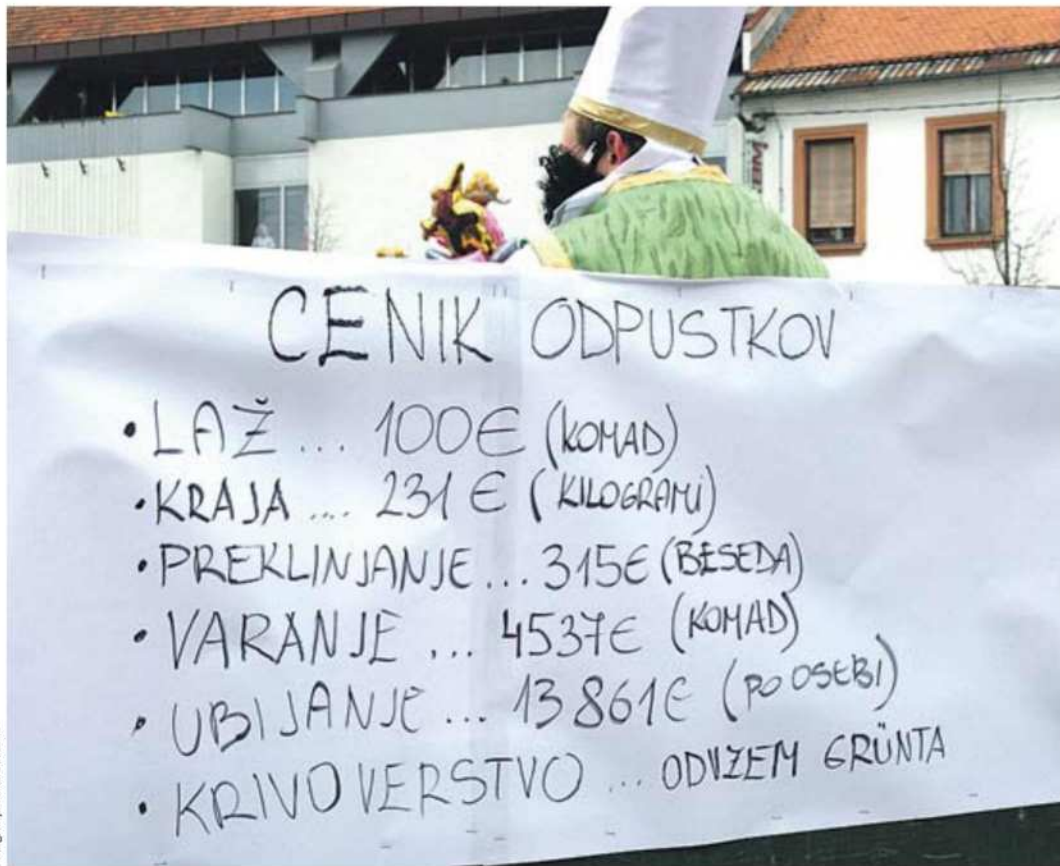 CENIK ODPUSTKOV
• LAŽ ... 100€ (KOMAD)
• KRAJA .... 231 € (KILOGRAMI)
• PREKLINJANJE ... 315€ (BESEDA)
• VARANJE ... 4537€ (KOMAD)
• UBIJANJE ... 13861€ (PO OSEBI)
• KRIVOVERSTVO ... ODVZEM GRÜNTA